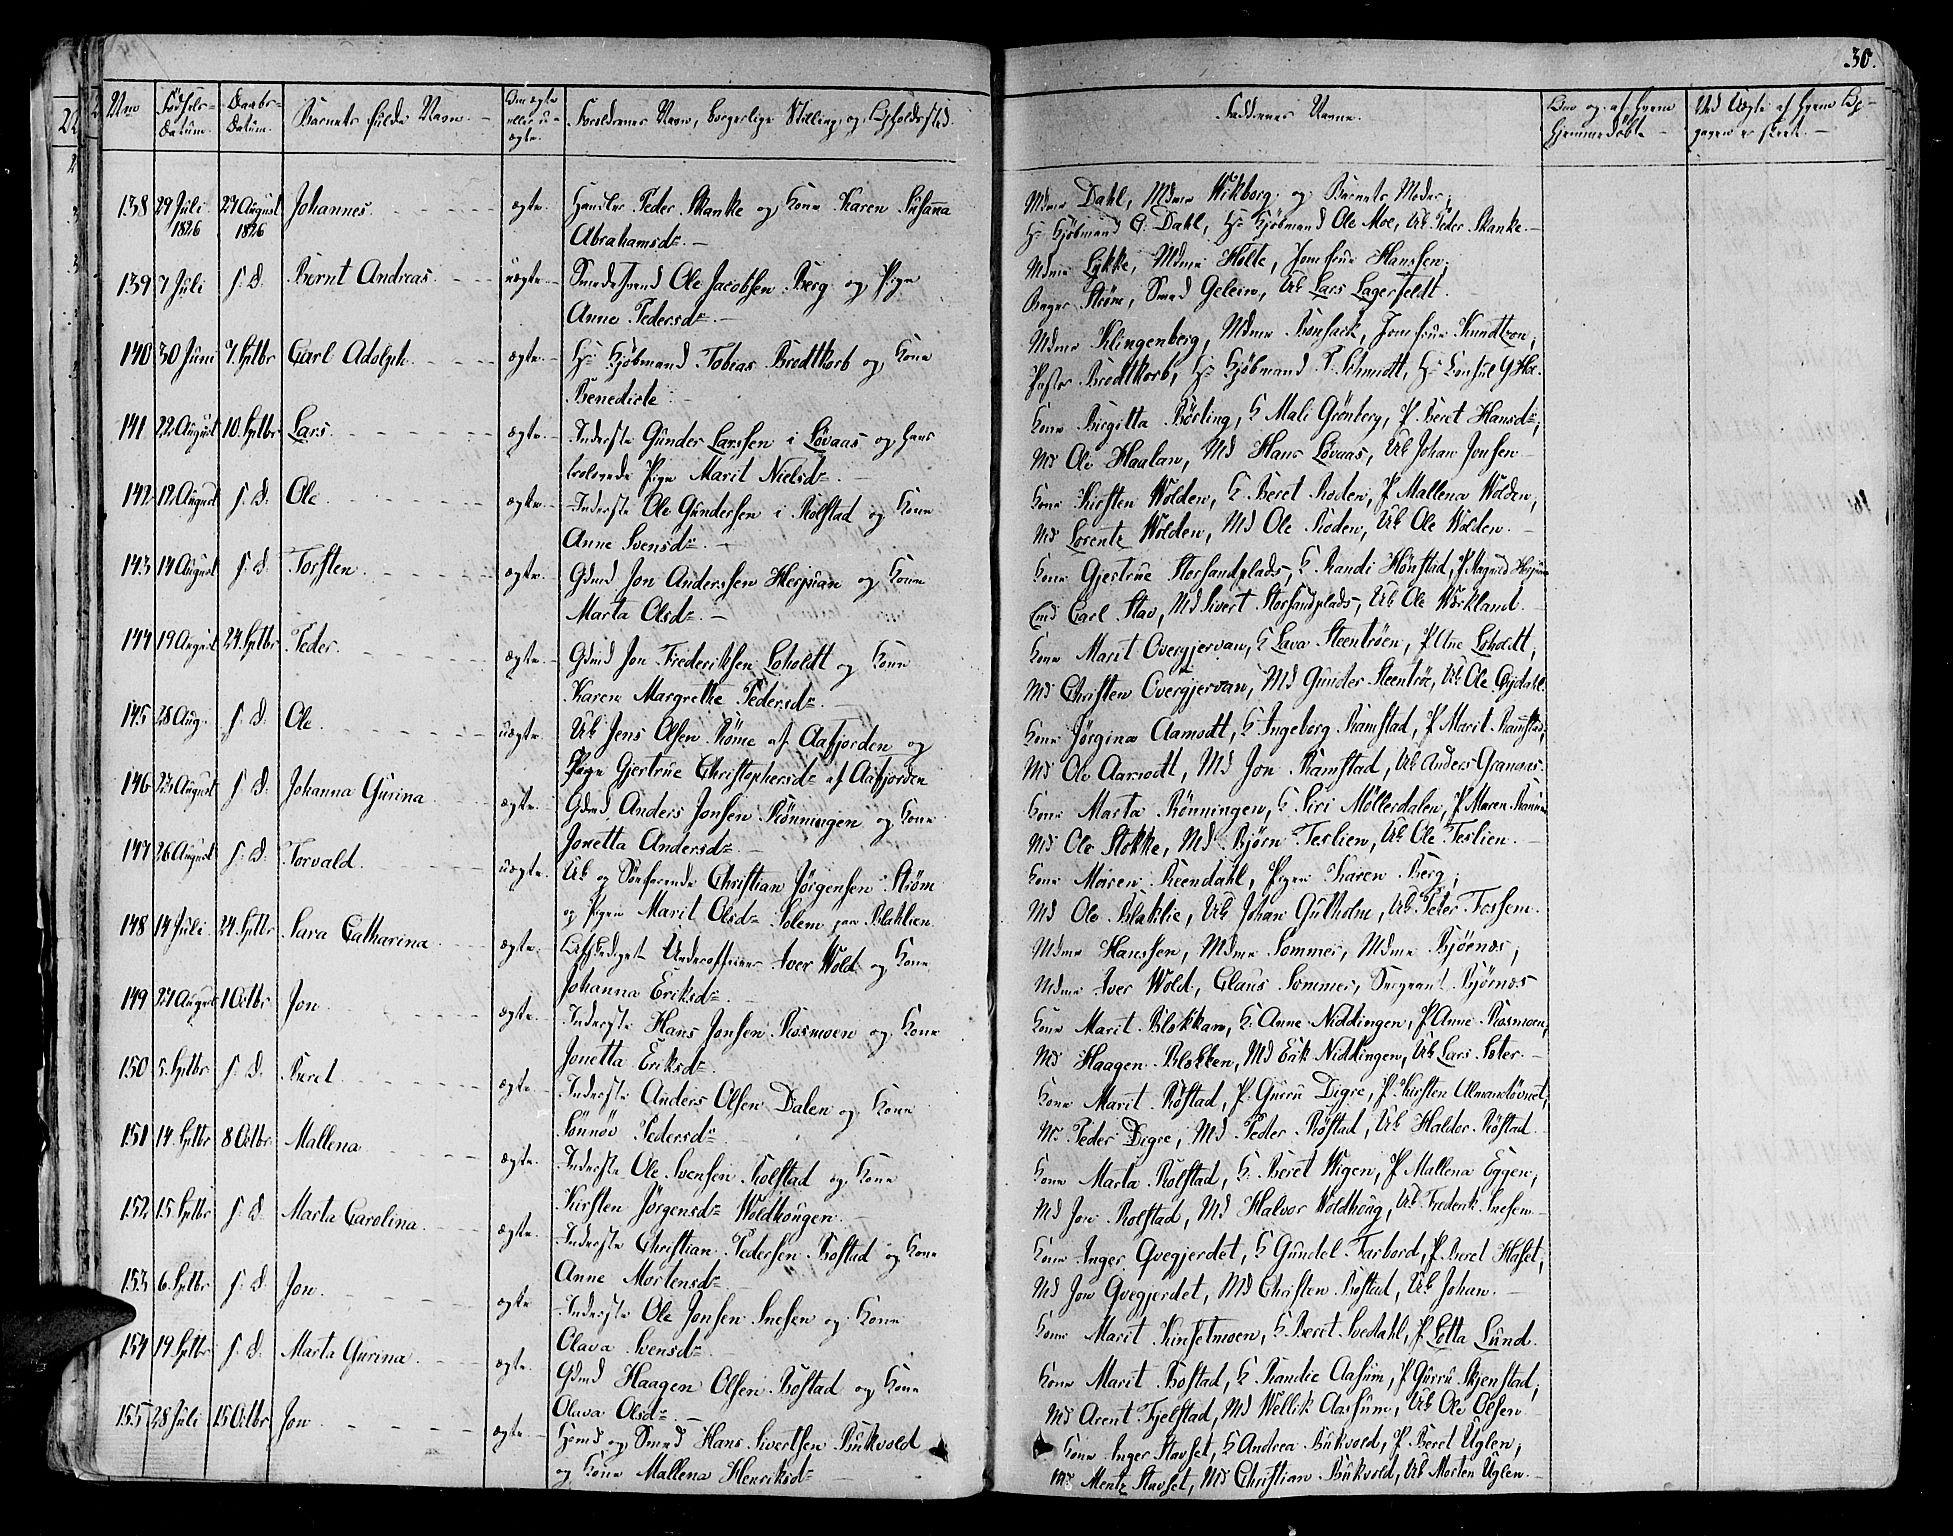 30.
Nno Fødsels- Datum. Daabs- Datum. Barnets fulde Navn. Om ægte eller u- ægte. Forældrenes Navn, borgerlige Stilling og Opholdssted. Faddernes Navne. Om og af hvem hjemmedøbt Ved
138 29 Juli 1826 27 August 1826 Johannes. ægte. Handler Peder Skanke og Kone Karen Susanna
Abrahamsdr.
Mdme Dahl, Mdme Wikborg og Barnets Moder;
Hr Kjöbmand C. Dahl, Hr Kjöbmand Ole Moe, Uk Peder Skanke.
139 7 Juli s. D. Bernt Andreas uægte. Smedesvend Ole Jacobsen Berg og Pige
Anne Pedersdr.
Mdme Lykke, Mdme Holte, Jomfrue Hanssen;
Bager Strøm, Smed Gelein, Uk Lars Lagerfeldt.
140 30 Juni 7. Sptbr Carl Adolph ægte. Hr Kjöbmand Tobias Brodtkorb og Kone
Benedicte
Mdme Klingenberg, Mdme Bonsack, Jomfrue Knudtzon;
Pastor Brodtkorb, Hr Kjöbmand P. Schmidt, Hr Consul G Hoe.
141 22 August 10. Sptbr Lars. ægte Inderste Gunder Larssen i Lövaas og hans
trolovede Pige Marit Nielsdr.
Kone Birgitta Börling, K Mali Grönberg, P. Beret Hansdr;
Md Ole Haalan, Md Hans Lövaas, Uk Johan Jonsen
142 12 August s. D. Ole ægte Inderste Ole Gundersen i Rolstad og Kone
Anne Svensdr.
Kone Kirsten Wolden, K. Beret Roden, P. Mallena Wolden;
Md Lorentz Wolden, Md Ole Roden, Uk Ole Wolden.
143 14 August s. D. Torsten. ægte. Gdmd Jon Anderssen Herjuan og Kone
Marta Olsdr.
Kone Gjertrue Storsandplads, K. Randi Hönstad, P. Magnild Herjuan
Carl Stav, Md Sivert Storsandplads, Uk Ole Wirkland.
144 19 August 24. Sptbr Peder. ægte. Gdmd Jon Frederiksen Loholdt og Kone
Karen Margrethe Pedersdr.
Kone Marit Overgjervan, K Lava Steentröen, P. Ane Loholdt;
Md Christen Overgjervan, Md Gunder Steentröe, Uk Ole
145 28 Aug. s. D. Ole. uægte. Uk Jens Olsen Röme af Aafjorden og
Pige Gjertrue Christophersdr af Aafjorden
Kone Jörgina Aamodt, K Ingeborg Ramstad, P. Marit Ramstad;
Md Ole Aamodt, Md Jon Ramstad, Uk Anders Granaas.
146 23 August s. D. Johanna Gurina ægte. Gdmd Anders Jonsen Rönningen og Kone
Jonetta Andersdr.
Kone Marta Rönningen, K. Siri Möllerdalen, P. Maren
Md Ole Stokke, Md Björn Teslien, Uk Ole Teslien.
147 26 August s. D. Torvald. uægte. Uk og Søefarende Christian Jörgensen Ström
og Pigen Marit Olsdr Solem paa Blaklien.
Kone Maren Reendahl, Pigen Karen Berg;
Md Ole Blaklie, Uk Johan Gulholm, Uk Peter Fossem.
148 14 Juli 24. Sptbr Sara Catharina ægte. Afskediget Underofficeer Iver Wold og Kone
Johanna Eriksdr.
Mdme Hanssen, Mdme Sommer, Mdme Björnæs;
Mdme Iver Wold, Claus Sommer, Sergeant Björnæs
149 27 August 1 Octbr Jon ægte. Inderste Hans Jonsen Rosmoen og Kone
Jonetta Eriksdr.
Kone Marit Blokkan, K. Anne Niddingen, P. Anne Rosmoen,
Md Haagen Blokken, Md Erik Niddingen, Uk Lars Sæter.
150 5. Sptbr s. D. Beret ægte Inderste Anders Olsen Dalen og Kone
Sönnöv Pedersdr
Kone Marit Röstad, P. Gurru Digre, P. Kirsten
Md Peder Digre, Md Peder Röstad, Uk Haldor Röstad
151 14. Sptbr 8 Octbr Mallena ægte. Inderste Ole Svensen Rolstad og Kone
Kirsten Jörgensdr Woldhougen.
Kone Marta Rolstad, K. Beret Wigen, P. Mallena Eggen;
Md Jon Rolstad, Md Halvor Woldhoug, Uk Frederik Snesem
152 15 Sptbr s. D. Marta Carolina. ægte Inderste Christian Pedersen Rostad og Kone
Anne Mortensdr
Kone Inger Qvegjerdet, K Gundel Tarbord, P. Beret Haset;
Md Jon Qvegjerdet, Md Christen Rostad, Uk Johan.
153 6. Sptbr s. D. Jon. ægte Inderste Ole Jonsen Snesen og Kone
Olava Svensdr.
Kone Marit Kinsetmoen, K Beret Svedahl, P Lotta Lund.
154 19. Sptbr s. D. Marta Gurina. ægte. Gdmd Haagen Olsen Röstad og Kone
Olava Olsdr.
Kone Marit Rostad, K. Randie Aasum, P. Gurru Skjenstad;
Md Arent Fjelstad, Md Wellik Aassum, Uk Ole Olsen
155 28 Juli 15 Octbr Jon ægte Hsmd og Smed Hans Sivertsen Bukvold
og Kone Mallena Henriksdr
Kone Inger Stavset, K Andrea Bukvold, P. Beret Uglen;
Md Mentz Stavset, Md Christian Bukvold, Uk Morten Uglen.